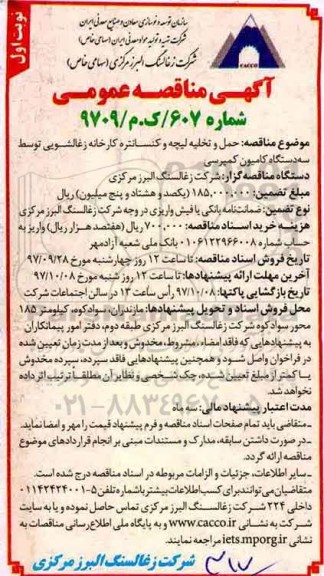 نوبت اول
سازمان توسعه و نوسازی معادن و صنایع معدنی ایران
شرکت تهیه و تولید مواد معدنی ایران (سهامی خاص)
شرکت زغالسنگ البرز مرکزی (سهامی خاص)
CACCO
آگهی مناقصه عمومی
شماره ۶۰۷/ک.م/۹۷۰۹
موضوع مناقصه: حمل و تخلیه لیچه و کنسانتره کارخانه زغالشویی توسط
سه دستگاه کامیون کمپرسی
دستگاه مناقصه گزار: شرکت زغالسنگ البرز مرکزی
مبلغ تضمین: ۱۸۵,۰۰۰,۰۰۰ (یکصد و هشتاد و پنج میلیون) ریال
نوع تضمین: ضمانتنامه بانکی یا فیش واریزی در وجه شرکت زغالسنگ البرز مرکزی
هزینه خرید اسناد مناقصه: ۷۰۰,۰۰۰ ریال (هفتصد هزار ریال) واریز به
حساب شماره ۰۱۰۶۱۲۲۹۶۶۰۰۸ بانک ملی شعبه آزادمهر
تاریخ فروش اسناد مناقصه: تا ساعت ۱۲ روز چهارشنبه مورخ ۹۷/۰۹/۲۸
آخرین مهلت ارائه پیشنهادها: تا ساعت ۱۲ روز شنبه مورخ ۹۷/۱۰/۰۸
تاریخ بازگشایی پاکتها: ۹۷/۱۰/۰۸ رأس ساعت ۱۳ در سالن اجتماعات شرکت
محل فروش اسناد و تحویل پیشنهادها: مازندران، سوادکوه، کیلومتر ۱۸۵
محور سوادکوه شرکت زغالسنگ البرز مرکزی طبقه دوم، دفتر امور پیمانکاران
به پیشنهادهایی که فاقد امضاء، مشروط، مخدوش و بعد از مدت زمان تعیین شده
در فراخوان واصل شود و همچنین پیشنهادهایی فاقد سپرده، سپرده مخدوش
یا کمتر از مبلغ تعیین شده، چک شخصی و نظایر آن مطلقاً ترتیب اثر داده
نخواهد شد.
مدت اعتبار پیشنهاد مالی: سه ماه
ـ متقاضی باید تمام صفحات اسناد مناقصه و فرم پیشنهاد قیمت را مهر و امضا نماید.
ـ در صورت داشتن سابقه، مدارک و مستندات مبنی بر انجام قراردادهای موضوع
مناقصه ارائه گردد.
ـ سایر اطلاعات، جزئیات و الزامات مربوطه در اسناد مناقصه درج شده است.
متقاضیان می‌توانند برای کسب اطلاعات بیشتر با شماره تلفن ۵-۰۱۱۴۲۴۲۴۰۰۱
داخلی ۲۲۴ شرکت زغالسنگ البرز مرکزی تماس حاصل نموده و یا به سایت
شرکت به نشانی www.cacco.ir و به پایگاه ملی اطلاع رسانی مناقصات به
نشانی iets.mporg.ir مراجعه نمایند.
شرکت زغالسنگ البرز مرکزی
۰۲۱-۸۸۳۴۹۶۷۰-۵